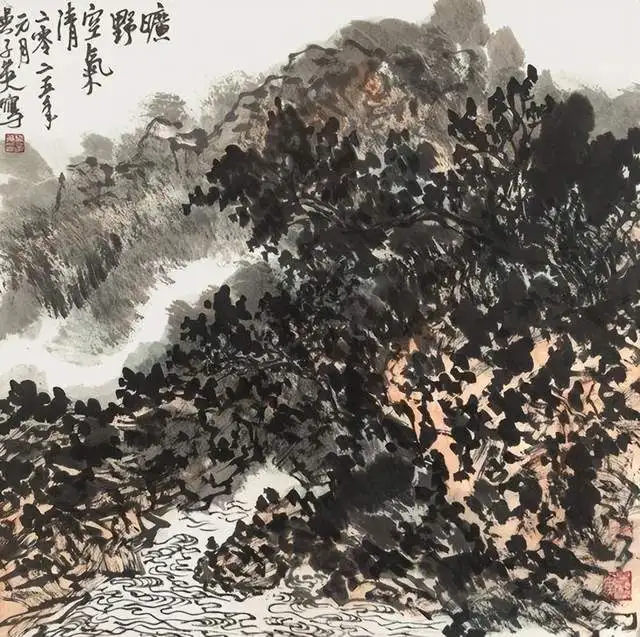 曠
野
空氣
清
二零二五年
元月
子英寫